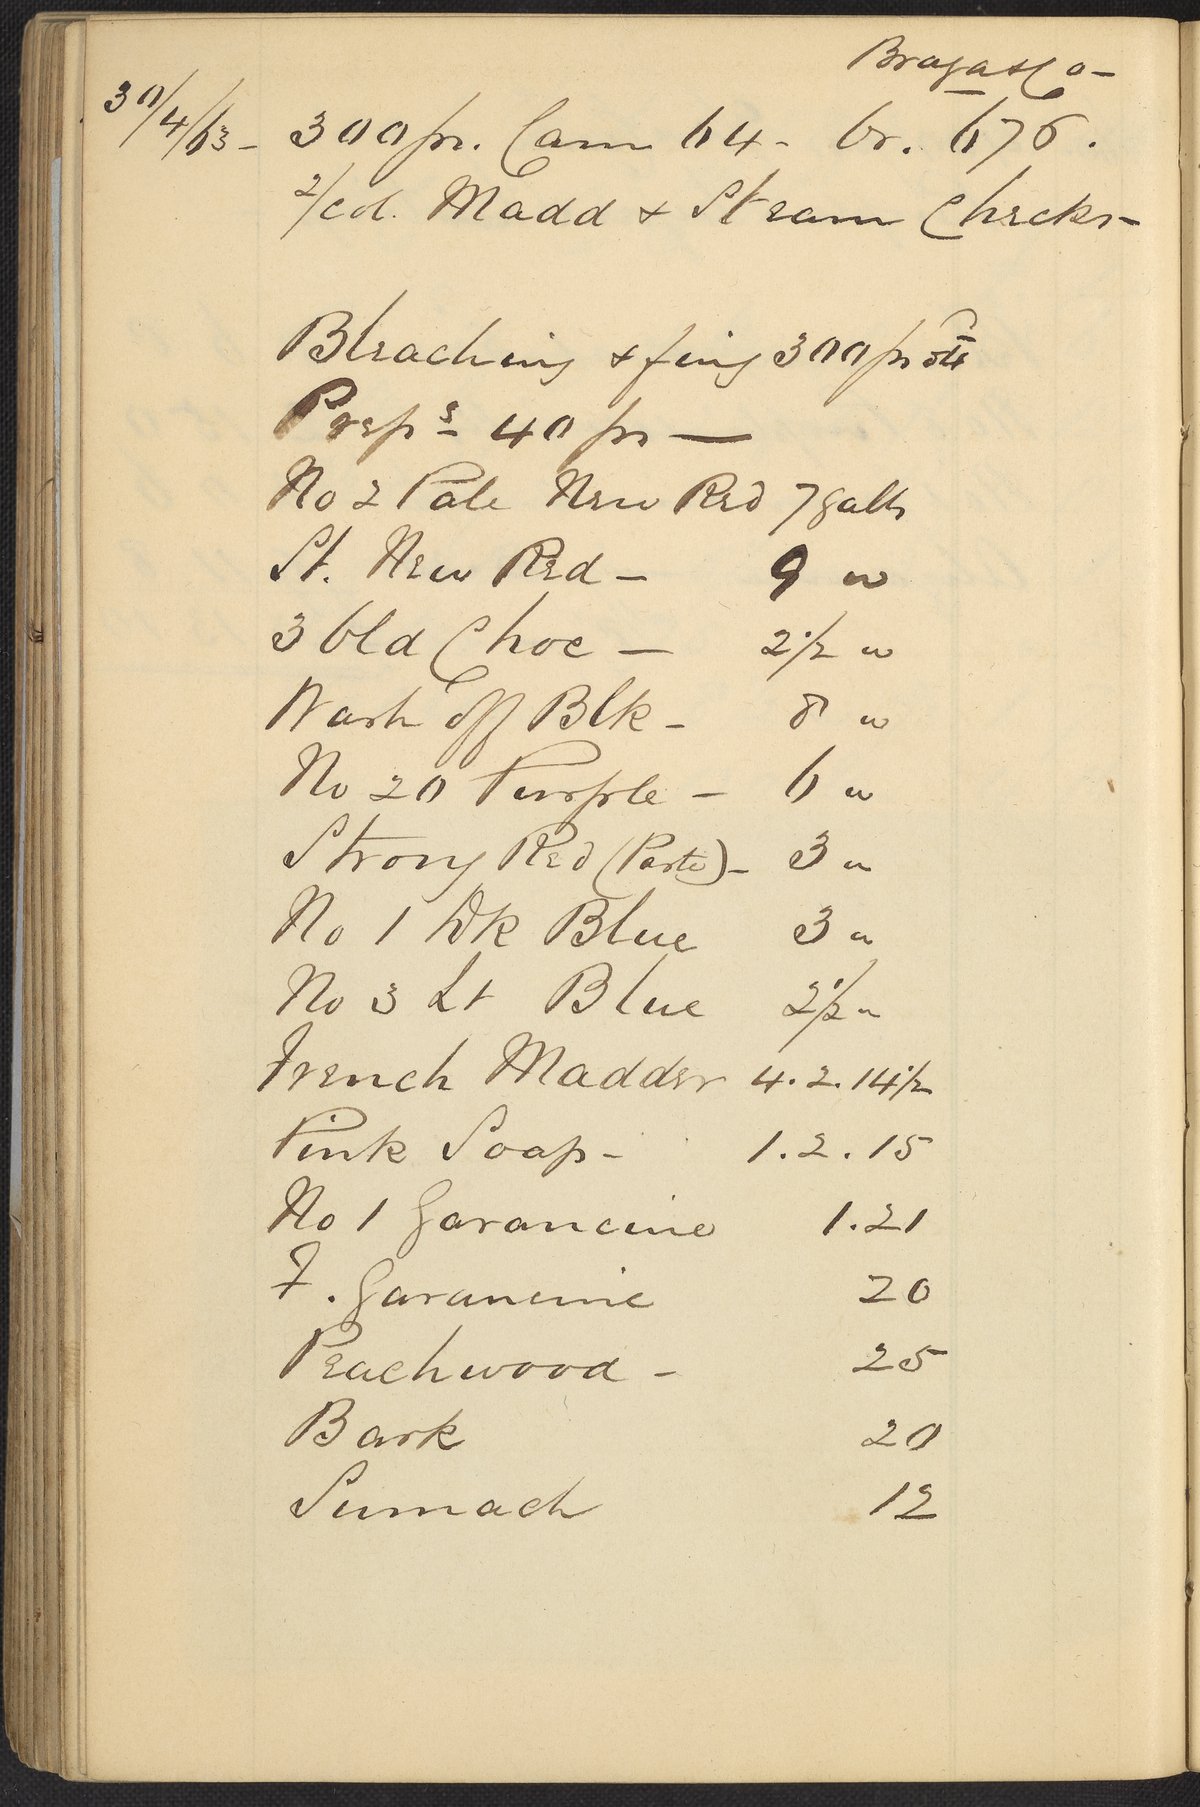 Braga & Co -
30/4/63 - 300 ps. Cam 64 - Or. 676.
2/col. Madd & Steam Checks -
Bleaching & fing 300 ps
Prepg 40 ps —
No 2 Pale New Red 7 galls
St. New Red - 9 "
3 Old Choc - 2 1/2 "
Wash off Blk - 8 "
No 20 Purple - 6 "
Strong Red (Paste) - 3 "
No 1 Dk Blue 3 "
No 3 Lt Blue 2 1/2 "
French Madder 4.2.14 1/2
Pink Soap - 1.2.15
No 1 Garancine 1.21
F. Garancine 20
Peachwood - 25
Bark 20
Sumach 12